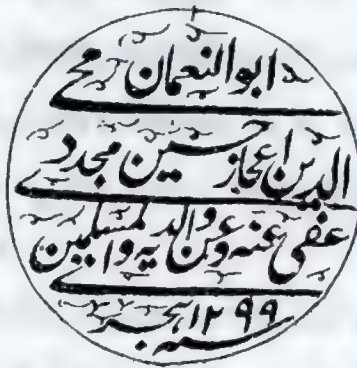 ابوالنعمان محی
الدین اعجاز حسین مجددی
عفی عنہ وعن والدیہ والمسلمین
سنہ ۱۲۹۹ ہجری